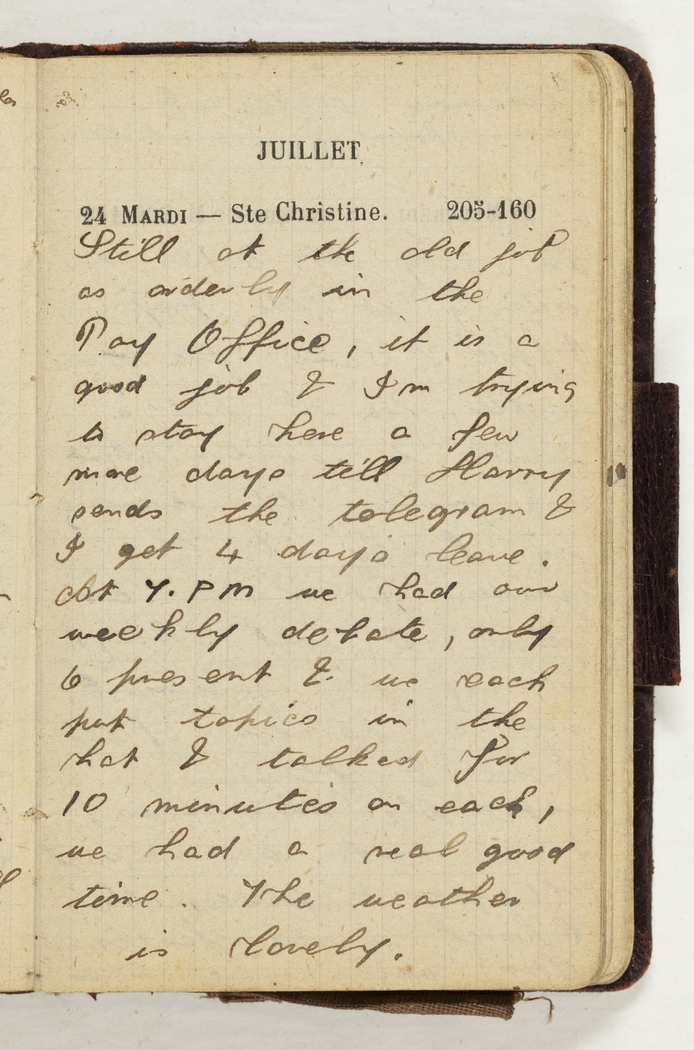 JUILLET
24 MARDI — Ste Christine. 205-160
Still at the old job
as orderly in the
Pay Office, it is a
good job & I'm trying
to stay here a few
more days till Harry
sends the telegram &
I get 4 days leave.
At 7. PM we had our
weekly debate, only
6 present & we each
put topics in the
hat & talked for
10 minutes on each,
we had a real good
time. The weather
is lovely.